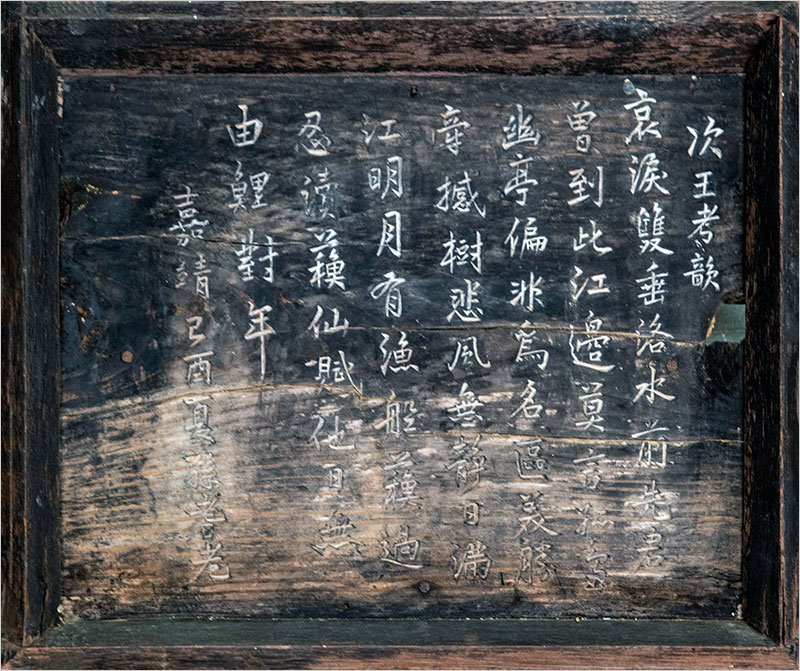 次王考韻
哀淚雙垂洛水前先君
曾到此江邊莫言孤
幽亭偏非爲名區義勝
牽撼樹悲風無靜日滿
江明月有漁船蘓過
忍讀蘓仙賦他日無
由鯉對年
嘉靖己酉夏孫老